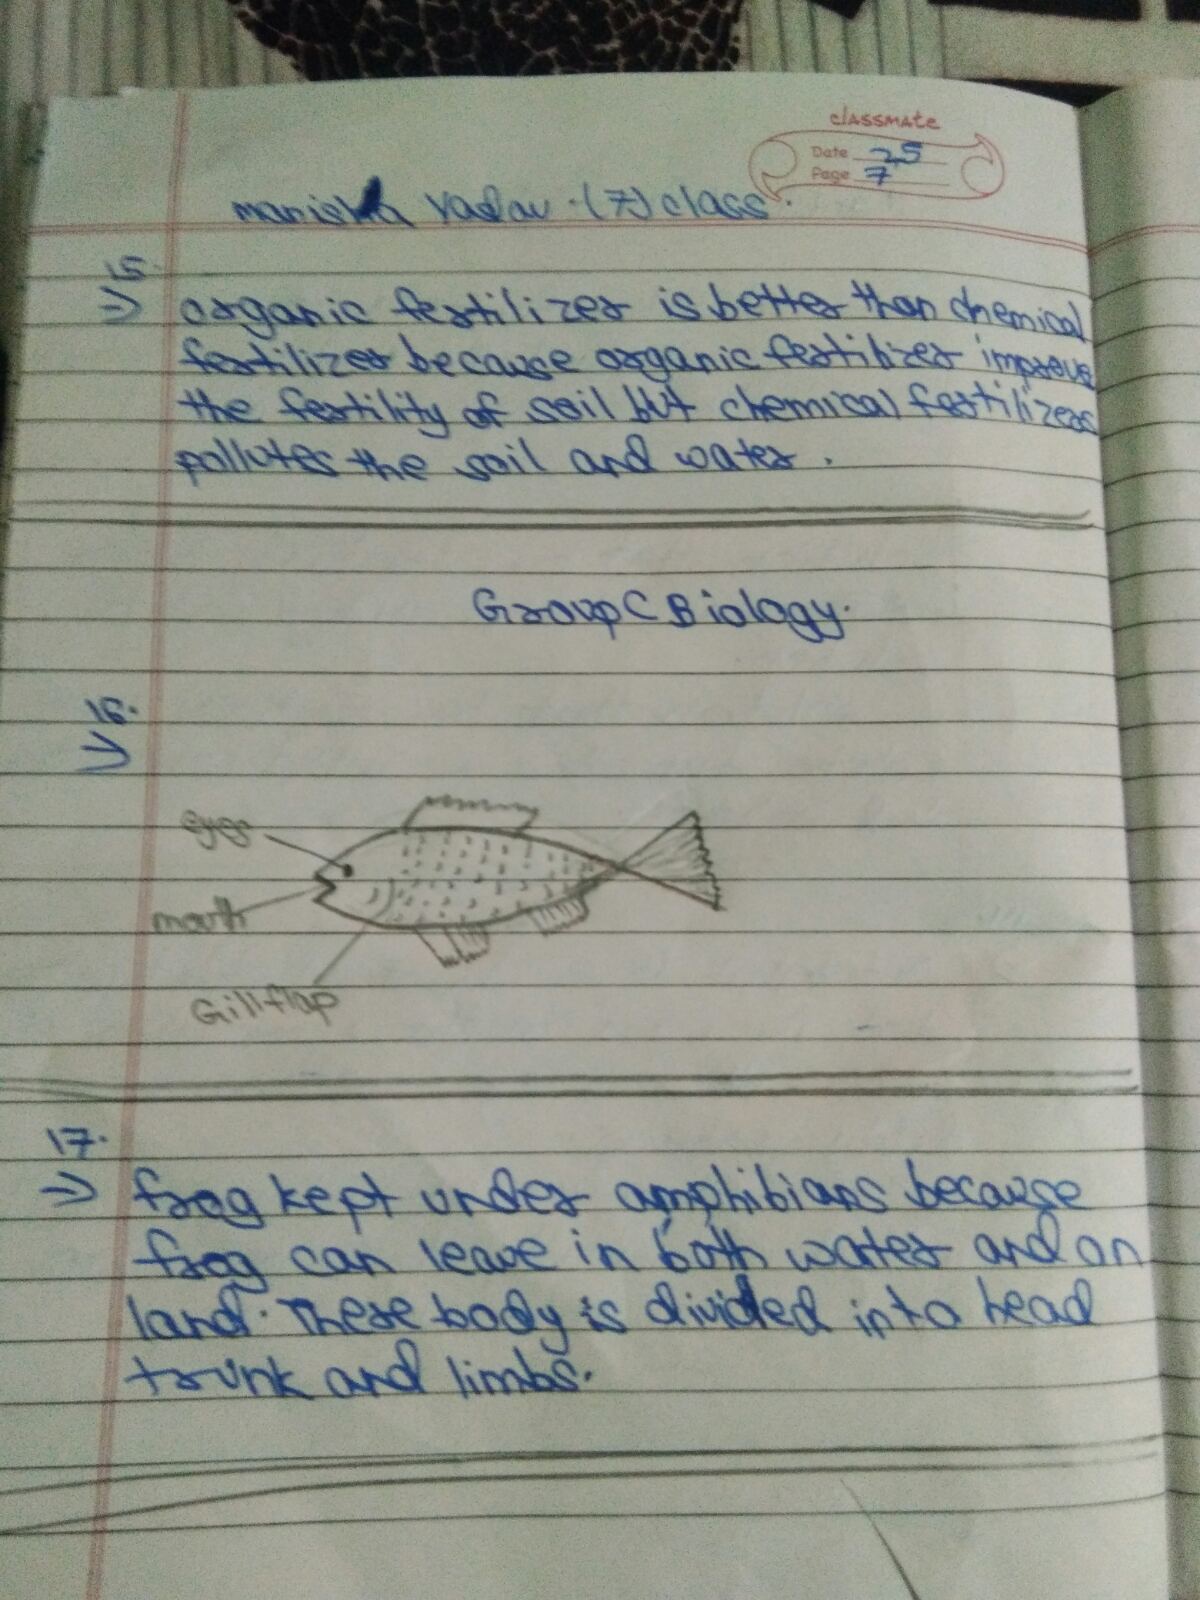 classmate
Date 25
Page 7
manisha Yadav (7) class.
15.
⇒ organic fertilizer is better than chemical
fertilizer because organic fertilizer improve
the fertility of soil but chemical fertilizers
pollutes the soil and water.
Group C Biology.
16.
⇒
eyes
mouth
Gill flap
17.
⇒ frog kept under amphibians because
frog can leave in both water and on
land. These body is divided into head
trunk and limbs.